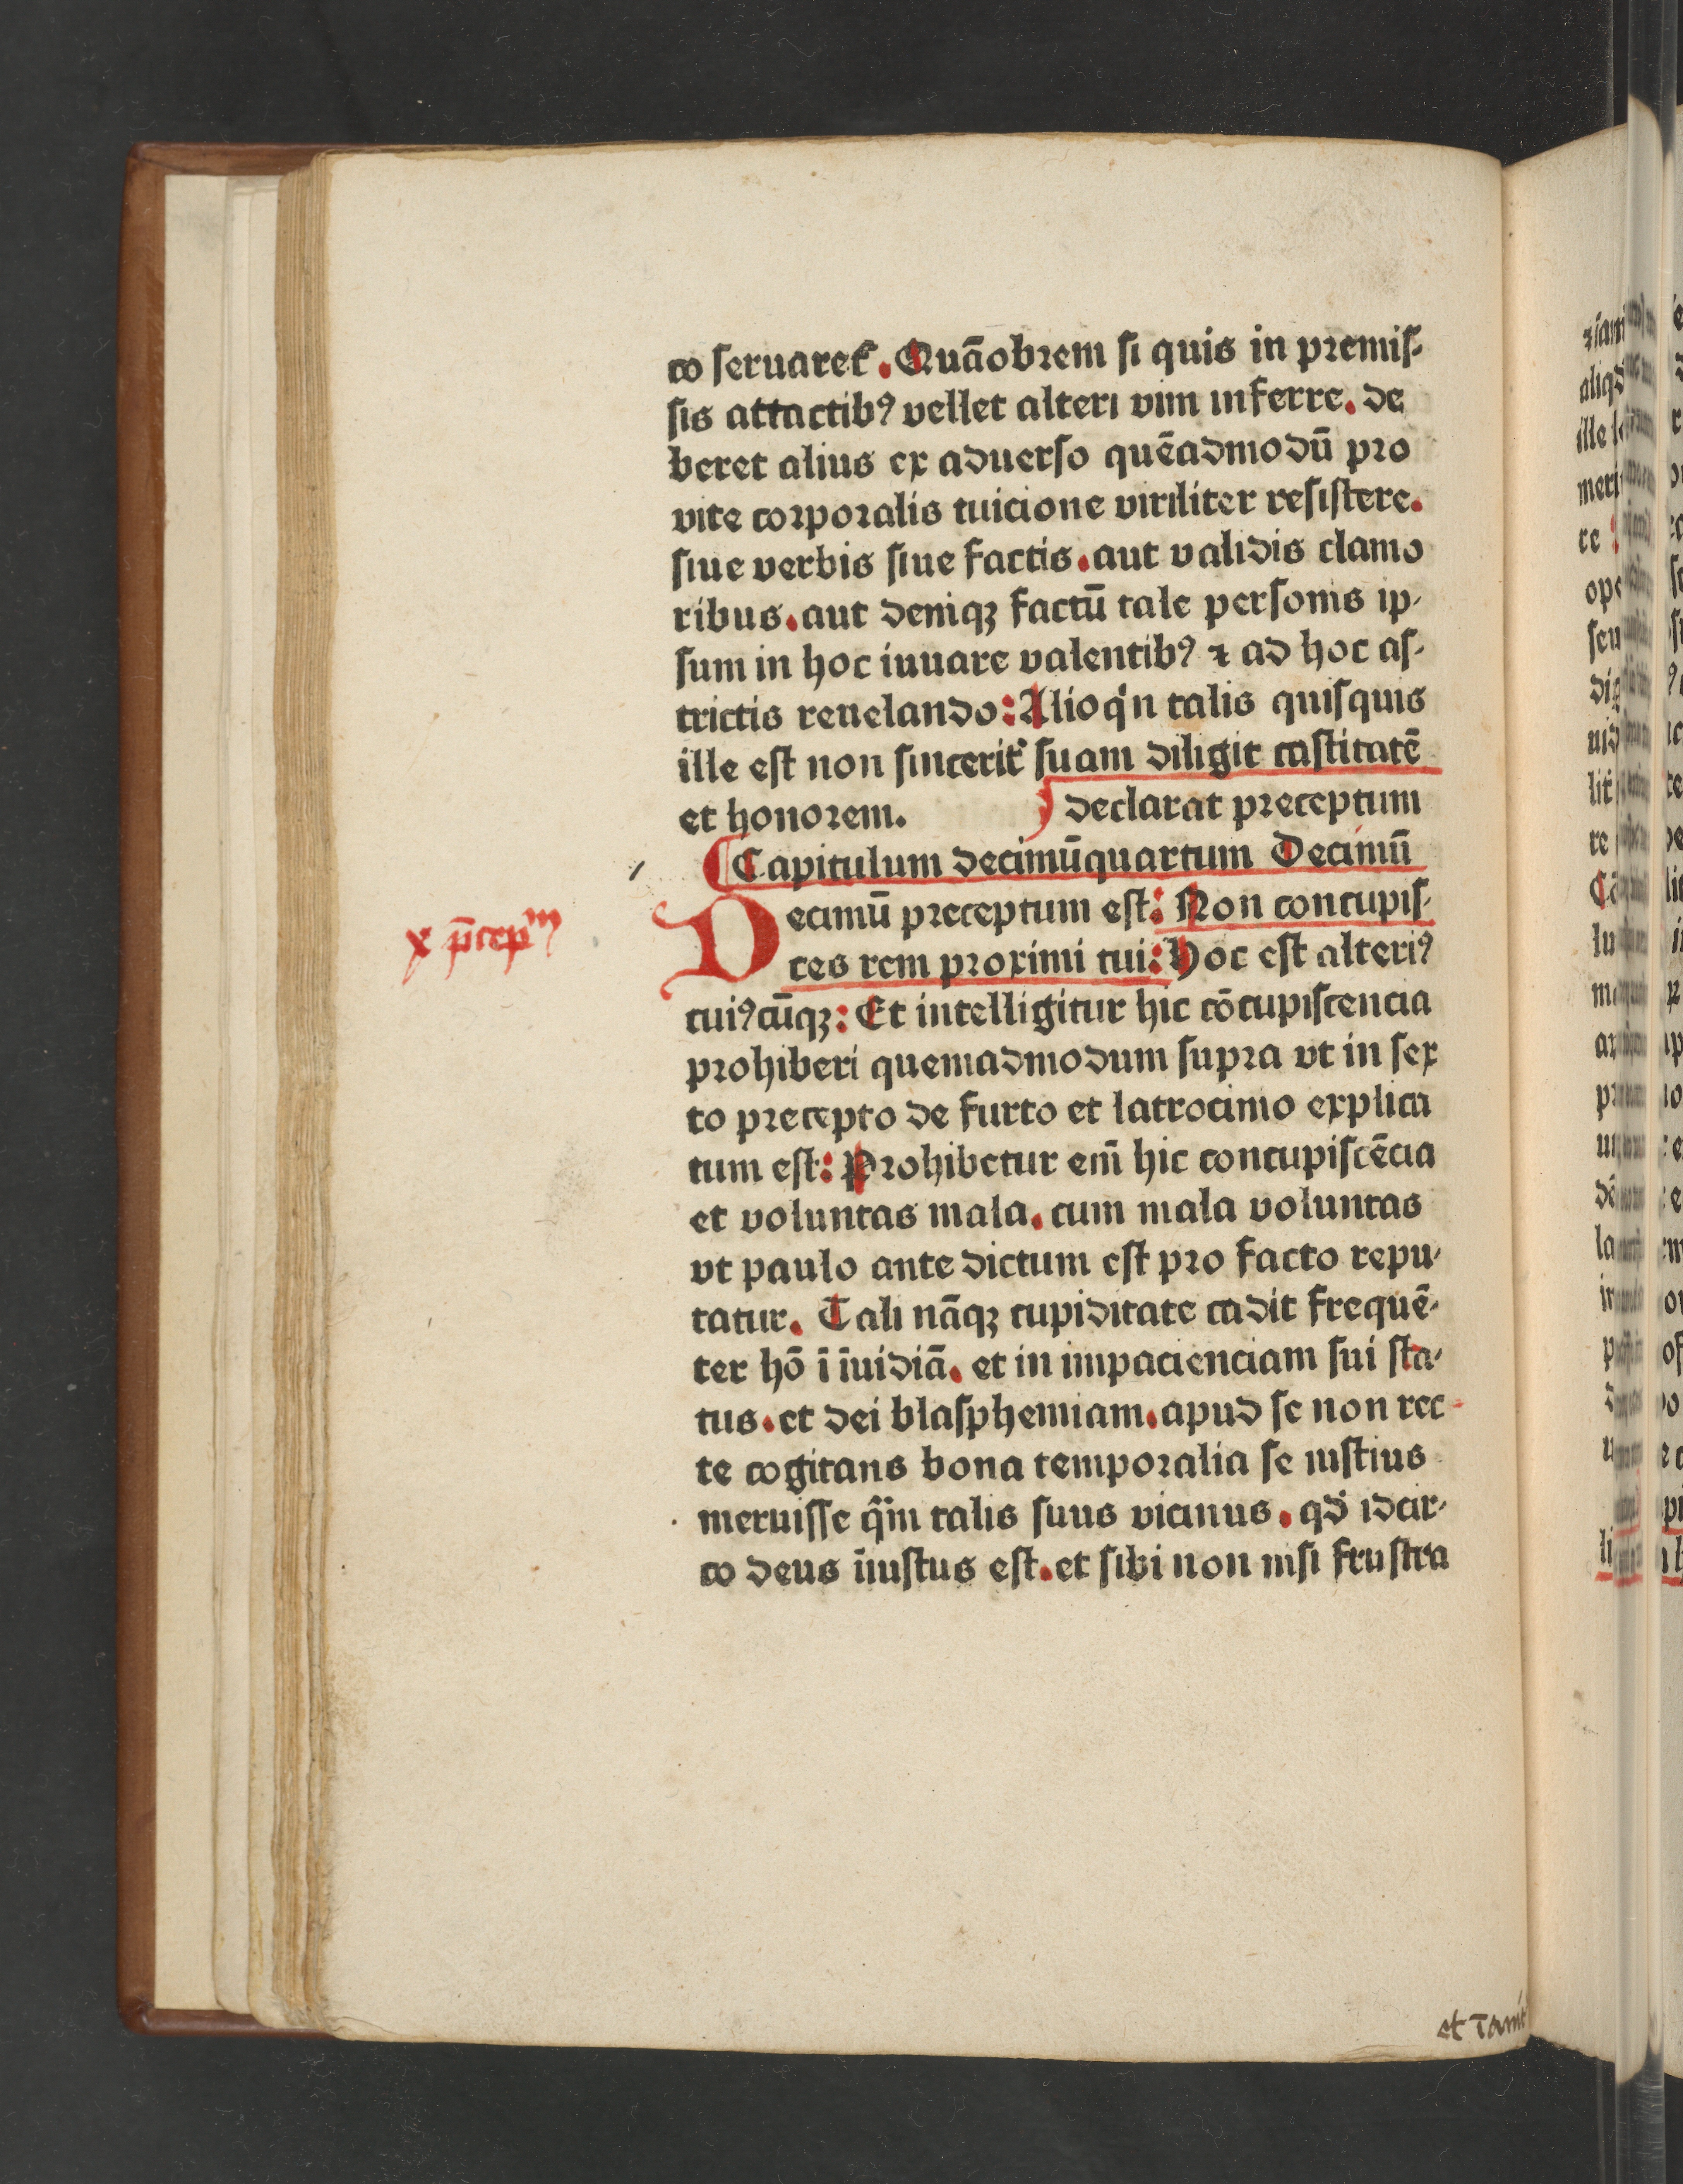 co ſeruaret᷑. Quāobꝛem ſi quis in pꝛemiſ-
ſis attactibꝰ vellet alteri vim inferre. de
beret alius ex aduerſo quēadmodū pꝛo
vite coꝛpoꝛalis tuicione viriliter reſiſtere.
ſiue verbis ſiue factis. aut validis clamo
ribus. aut deniqꝫ factū tale perſonis ip-
ſum in hoc iuuare valentibꝰ ⁊ ad hoc aſ-
trictis reuelando: Alioqͥn talis quiſquis
ille eſt non ſincerit᷑ ſuam diligit caſtitatē
et honoꝛem. declarat pꝛeceptum
Capitulum decimūquartum Decimū
Decimū pꝛeceptum eſt: Non concupiſ-
x p̄cepᵗᵐ
ces rem pꝛoximi tui: Hoc eſt alteriꝰ
cuiꝰcūqꝫ: Et intelligitur hic cōcupiſcencia
pꝛohiberi quemadmodum ſupꝛa vt in ſex
to pꝛecepto de furto et latrocinio explica
tum eſt: Pꝛohibetur em̄ hic concupiſcēcia
et voluntas mala. cum mala voluntas
vt paulo ante dictum eſt pꝛo facto repu-
tatur. Tali nāqꝫ cupiditate cadit frequē-
ter hō ī īuidiā. et in impacienciam ſui ſta-
tus. et dei blaſphemiam. apud ſe non rec-
te cogitans bona tempoꝛalia ſe iuſtius
meruiſſe qͣm talis ſuus vicinus. qd̓ idcir-
co deus īiuſtus eſt. et ſibi non niſi fruſtra